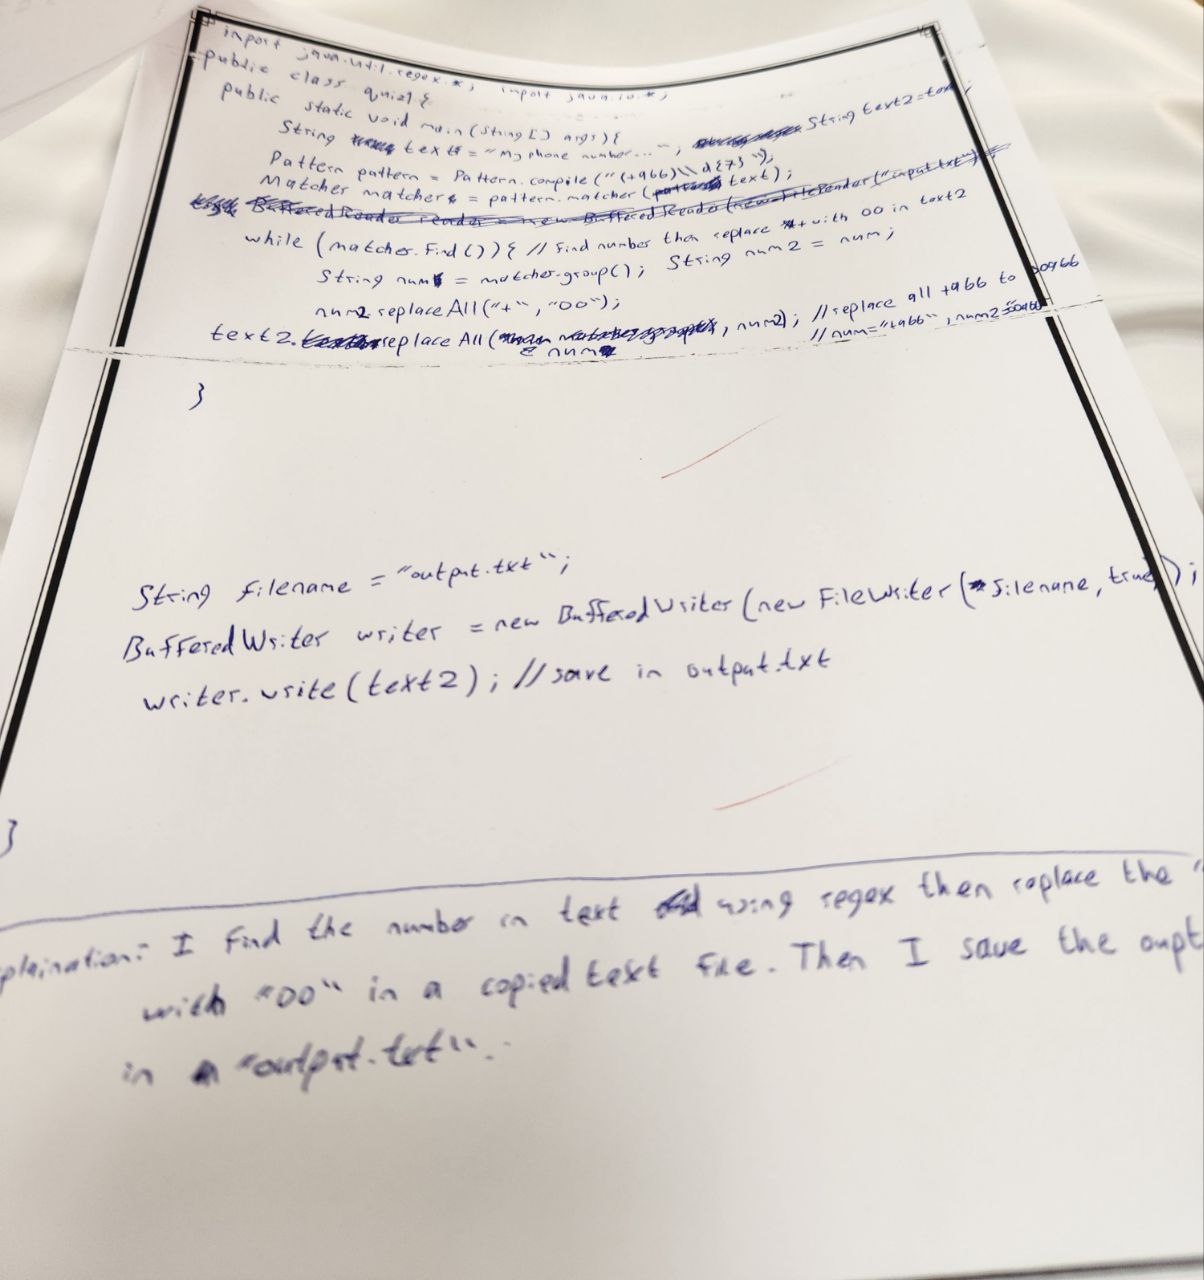 import java.util.regex.*; import java.io.*;
public class quiz1 {
public static void main (String [] args) {
String text = "My phone number..."; String text2=text;
Pattern pattern = Pattern.compile("(+966)\\d{7}");
Matcher matcher = pattern.matcher (text);
BufferedReader reader = new BufferedReader (new FileReader ("input.txt")
while (matcher.find()) { // find number then replace + with 00 in text2
String num = matcher.group(); String num2 = num;
num2 replaceAll("+", "00");
text2.replaceAll( num , num2); //replace all +966 to 00966
//num="+966", num2="00966
}
String filename = "output.txt";
BufferedWriter writer = new BufferedWriter (new FileWriter (filename, true));
writer.write(text2); //save in output.txt
}
plaination: I find the number in text using regex then replace the "
with "00" in a copied text file. Then I save the oupt
in "output.txt".